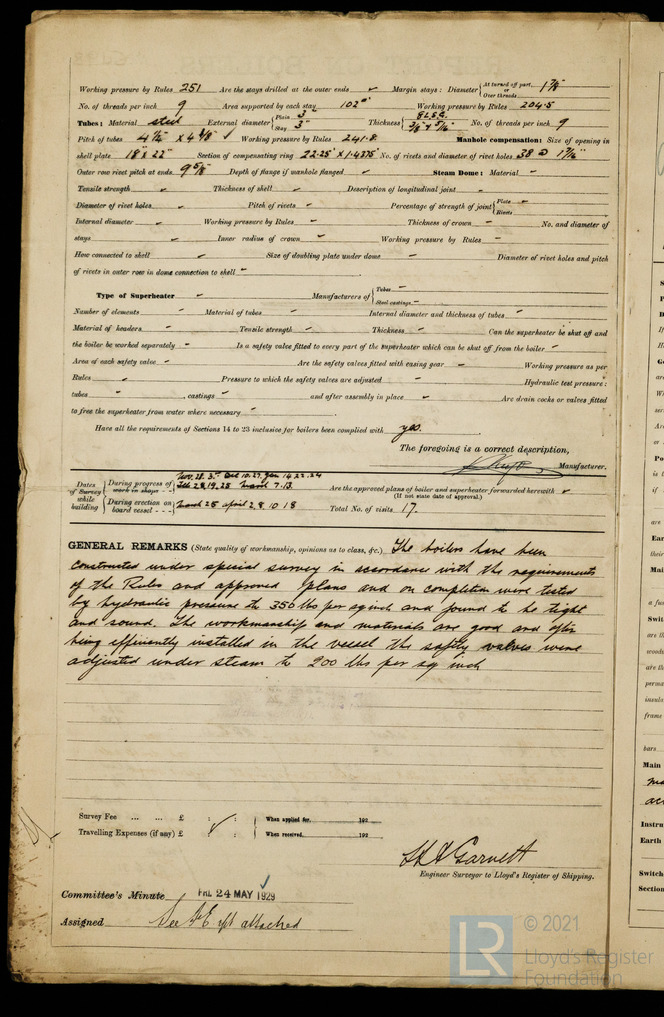 Working pressure by Rules 251 Are the stays drilled at the outer ends Margin stays: Diameter { At turned off part, or Over threads 1 7/8"
No. of threads per inch 9 Area supported by each stay 102" Working pressure by Rules 204.5
Tubes: Material steel External diameter { Plain 3" Stay 3" Thickness { 8 L.S.G. 3/8" & 5/16" No. of threads per inch 9
Pitch of tubes 4 1/4" x 4 3/8" ✓ Working pressure by Rules 241.8 Manhole compensation: Size of opening in
shell plate 18" x 22" Section of compensating ring 22.25" x 1.4375" No. of rivets and diameter of rivet holes 38 @ 1 7/16"
Outer row rivet pitch at ends 9 5/8" Depth of flange if manhole flanged Steam Dome: Material
Tensile strength Thickness of shell Description of longitudinal joint
Diameter of rivet holes Pitch of rivets Percentage of strength of joint { Plate Rivets
Internal diameter Working pressure by Rules Thickness of crown No. and diameter of
stays Inner radius of crown Working pressure by Rules
How connected to shell Size of doubling plate under dome Diameter of rivet holes and pitch
of rivets in outer row in dome connection to shell
Type of Superheater Manufacturers of { Tubes Steel castings
Number of elements Material of tubes Internal diameter and thickness of tubes
Material of headers Tensile strength Thickness Can the superheater be shut off and
the boiler be worked separately Is a safety valve fitted to every part of the superheater which can be shut off from the boiler
Area of each safety valve Are the safety valves fitted with easing gear Working pressure as per
Rules Pressure to which the safety valves are adjusted Hydraulic test pressure:
tubes , castings and after assembly in place Are drain cocks or valves fitted
to free the superheater from water where necessary
Have all the requirements of Sections 14 to 23 inclusive for boilers been complied with yes.
The foregoing is a correct description,
Manufacturer.
Dates of Survey while building { During progress of work in shops - - Nov. 28. 3. Dec 10. 27. Jan 14 22. 24 Feb 28, 19, 25 March 7. 13.
During erection on board vessel - - - March 25 april 2. 8. 10 18
Are the approved plans of boiler and superheater forwarded herewith
(If not state date of approval.)
Total No. of visits 17.
GENERAL REMARKS (State quality of workmanship, opinions as to class, &c.) The boilers have been
constructed under special survey in accordance with the requirements
of the Rules and approved plans and on completion were tested
by hydraulic pressure to 350 lbs per sq inch and found to be tight
and sound. The workmanship and materials are good and after
being efficiently installed in the vessel the safety valves were
adjusted under steam to 200 lbs per sq inch
Survey Fee ... ... £ : : { When applied for, 192
Travelling Expenses (if any) £ : : { When received, 192
Garnett
Engineer Surveyor to Lloyd's Register of Shipping.
Committee's Minute FRI. 24 MAY 1929
Assigned See F.E. rpt attached
LR © 2021
Lloyd's Register
Foundation